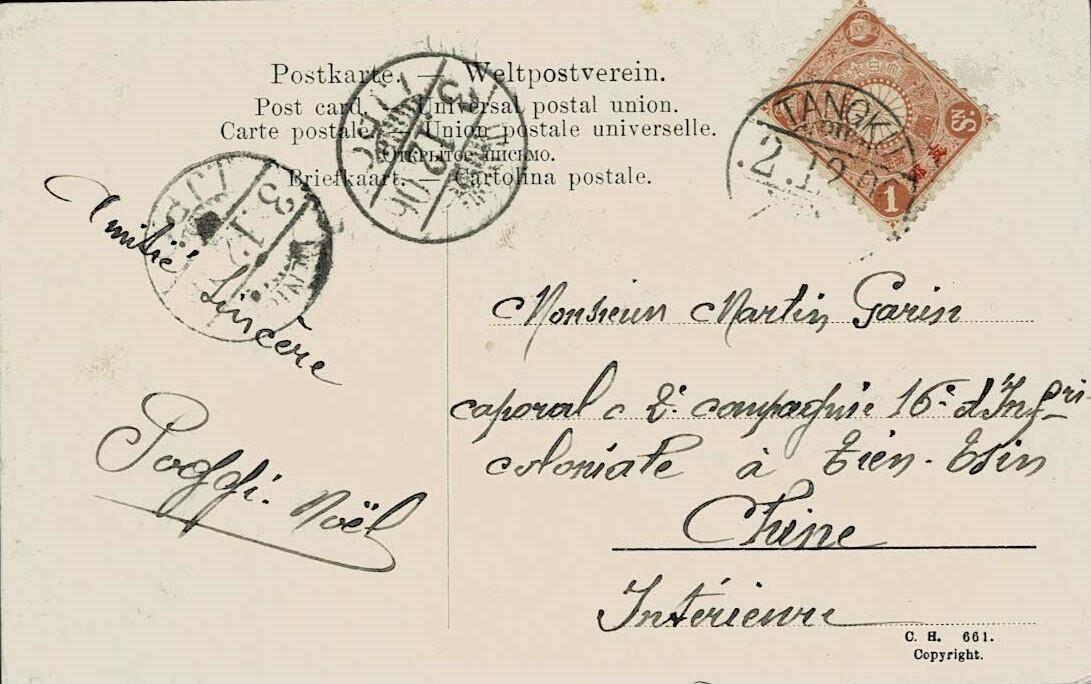 Postkarte. — Weltpostverein.
Post card. — Universal postal union.
Carte postale. — Union postale universelle.
Открытое письмо.
Briefkaart. — Cartolina postale.
TANGKU
2.12.0
3.12.06
3.12
1
Sn.
Amitié Sincère
Poggi. Noël
Monsieur Martin Garin
caporal 2e compagnie 16e d'Infrie
coloniale à Tien-Tsin
Chine
Intérieure
C. H. 661.
Copyright.